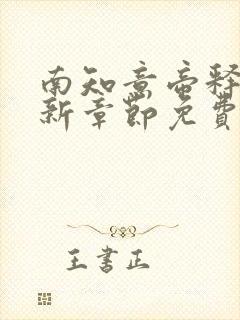 南知意帝释
新章節免費
王書正